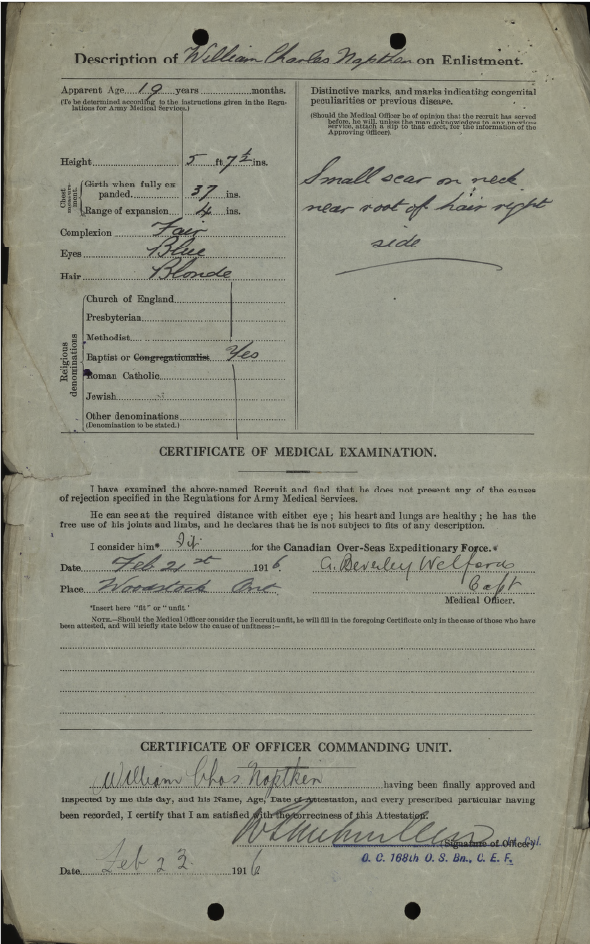 Description of William Charles Naptken on Enlistment.
Apparent Age 19 years months.
(To be determined according to the instructions given in the Regulations for Army Medical Services.)
Height 5 ft. 7½ ins.
Chest measurement. Girth when fully expanded 37 ins.
Range of expansion 4 ins.
Complexion Fair
Eyes Blue
Hair Blonde
Religious denominations
Church of England
Presbyterian
Methodist
Baptist or Congregationalist Yes
Roman Catholic
Jewish
Other denominations
(Denomination to be stated.)
Distinctive marks, and marks indicating congenital
peculiarities or previous disease.
(Should the Medical Officer be of opinion that the recruit has served
before, he will, unless the man acknowledges to any previous
service, attach a slip to that effect, for the information of the
Approving Officer).
Small scar on neck
near root of hair right
side
CERTIFICATE OF MEDICAL EXAMINATION.
I have examined the above-named Recruit and find that he does not present any of the causes
of rejection specified in the Regulations for Army Medical Services.
He can see at the required distance with either eye; his heart and lungs are healthy; he has the
free use of his joints and limbs, and he declares that he is not subject to fits of any description.
I consider him* Fit for the Canadian Over-Seas Expeditionary Force.
Date Feb 21st 1916. A. Beverley Welford
Place Woodstock Ont Capt
Medical Officer.
*Insert here "fit" or "unfit"
NOTE.—Should the Medical Officer consider the Recruit unfit, he will fill in the foregoing Certificate only in the case of those who have
been attested, and will briefly state below the cause of unfitness:—
CERTIFICATE OF OFFICER COMMANDING UNIT.
William Chas Naptken having been finally approved and
inspected by me this day, and his Name, Age, Date of Attestation, and every prescribed particular having
been recorded, I certify that I am satisfied with the correctness of this Attestation.
(Signature of Officer)
O. C. 168th O. S. Bn., C. E. F.
Date Feb 23 1916